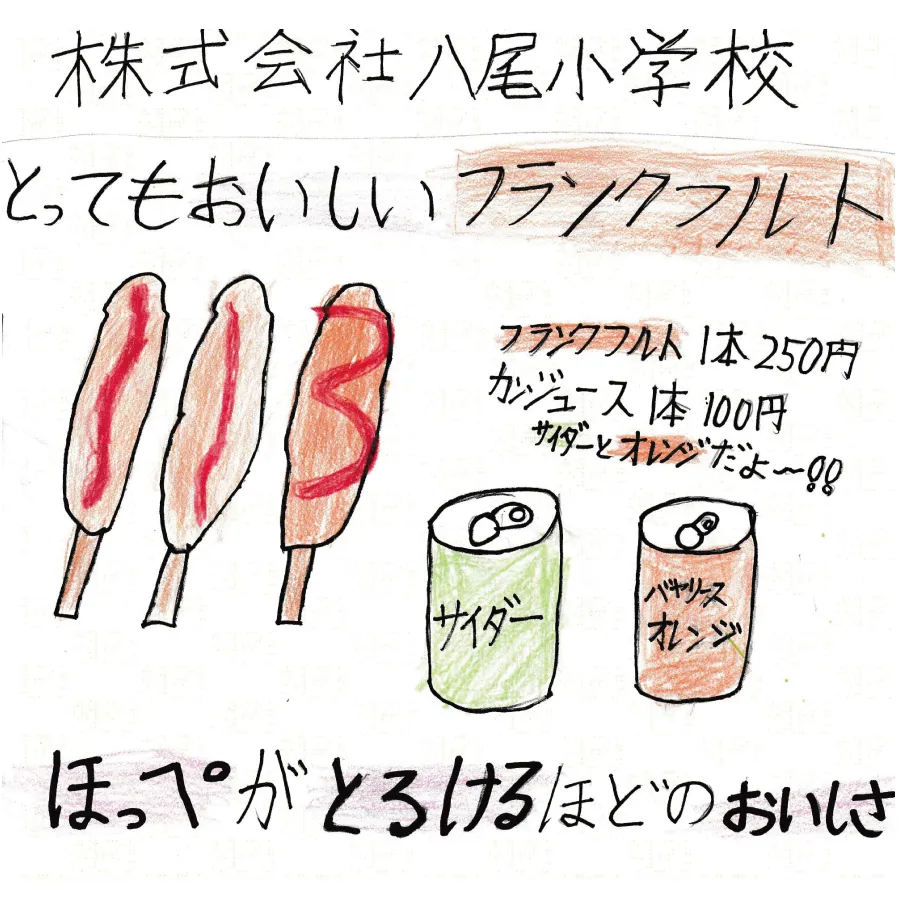 株式会社八尾小学校
とってもおいしいフランクフルト
フランクフルト 1本 250円
カンジュース 1本 100円
サイダーとオレンジだよ〜!!
サイダー
バヤリース
オレンジ
ほっぺがとろけるほどのおいしさ